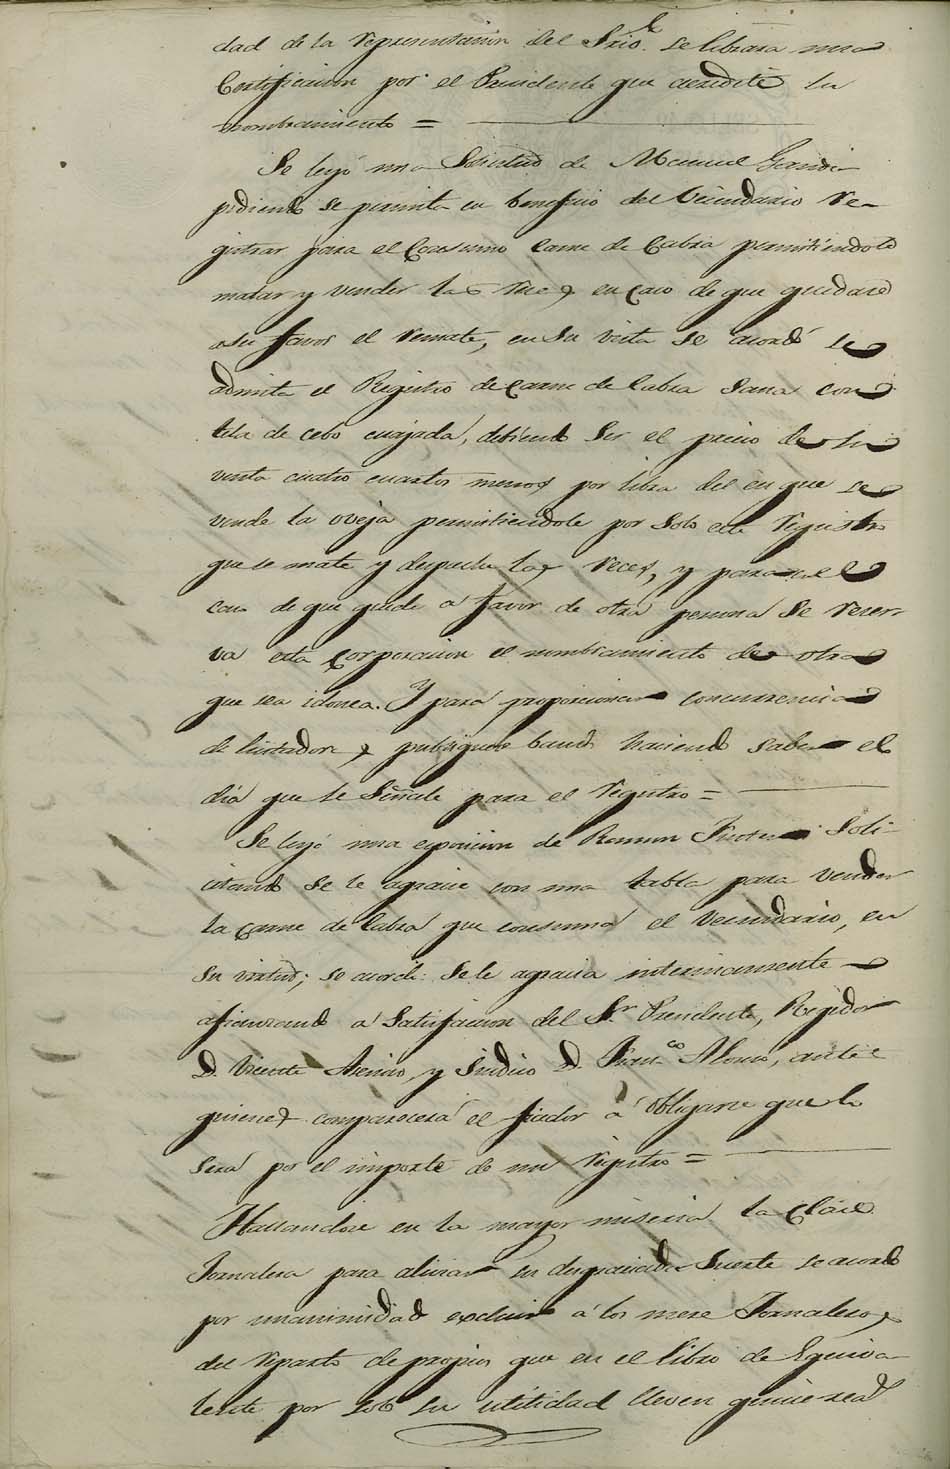 dad de la representacion del Srio. se librara una
Certificacion por el Presidente que acredite su
nombramiento =
Se leyó una Solicitud de Manuel
pidiendo se permita en beneficio del Vecindario Re-
gistrar para el Consumo Carne de Cabra permitiendole
matar y vender las reces en caso de que quedare
a su favor el remate, en su vista se acordó se
admita el Registro de Carne de Cabra Sana con
tela de cebo cuajada, debiendo Ser el precio de su
venta cuatro cuartos menos por libra del en que se
vende la oveja permitiendole por solo este Registro
que se mate y despache las reces, y para el
caso de que quede a favor de otra persona se reser-
va esta Corporacion el nombramiento de otra
que sea idonea. Y para proporcionar concurrencia
de licitadores publiquese bando haciendo saber el
dia que se Señale para el Registro =
Se leyó una esposicion de Ramon Soli-
citando se le agracie con una tabla para vender
la Carne de Cabra que consuma el Vecindario, en
su virtud; se acordó: Se le agracia interinamente
afianzando á Satisfaccion del Sr. Presidente, Regidor
D. Vicente Asensio, y Sindico D. Franco. Alonso, ante
quienes comparecerá el fiador á obligarse que lo
será por el importe de un registro =
Hallandose en la mayor miseria la Clase
Jornalera para aliviar su desgraciada Suerte se acordó
por unanimidad excluir á los mere Jornaleros
del reparto de propios que en el libro de Equiva-
lente por solo su utilidad lleven quince rea